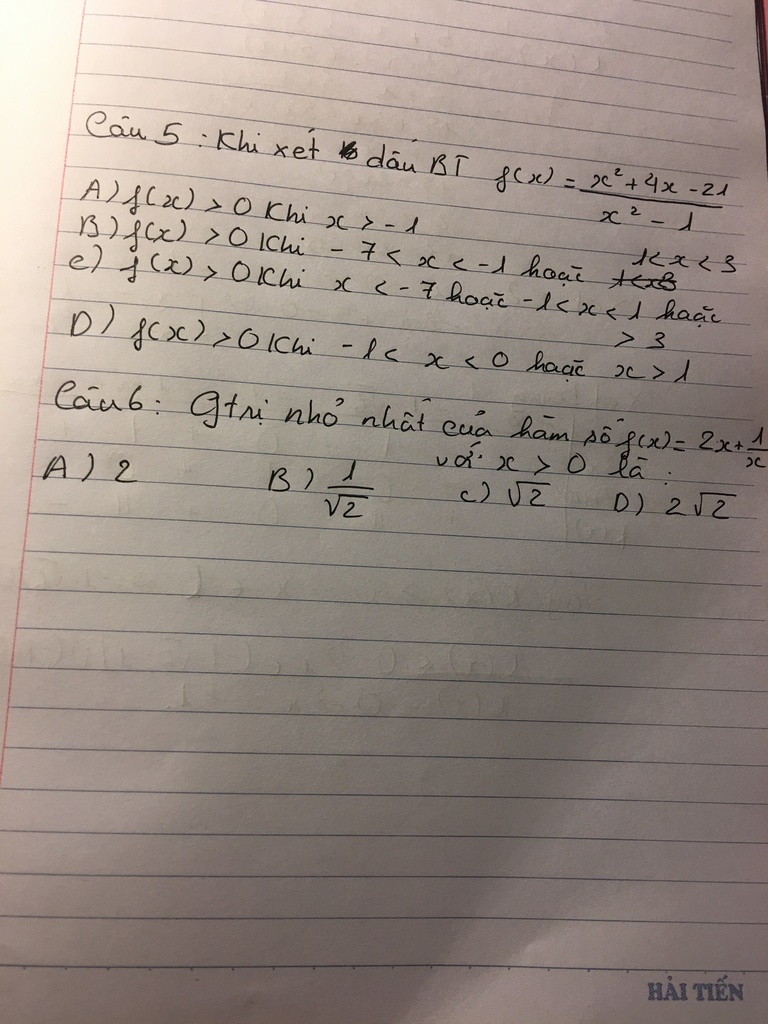 Câu 5 : Khi xét dấu BT f(x) = \frac{x² + 4x - 21}{x² - 1}
A) f(x) > 0 Khi x > -1
B) f(x) > 0 Khi -7 < x < -1 hoặc 1 < x < 3
c) f(x) > 0 Khi x < -7 hoặc -1 < x < 1 hoặc
> 3
D) f(x) > 0 Khi -1 < x < 0 hoặc x > 1
Câu 6 : Gtrị nhỏ nhất của hàm số f(x) = 2x + \frac{1}{x}
với x > 0 là :
A) 2 B) \frac{1}{√2} c) √2 D) 2√2
HẢI TIẾN